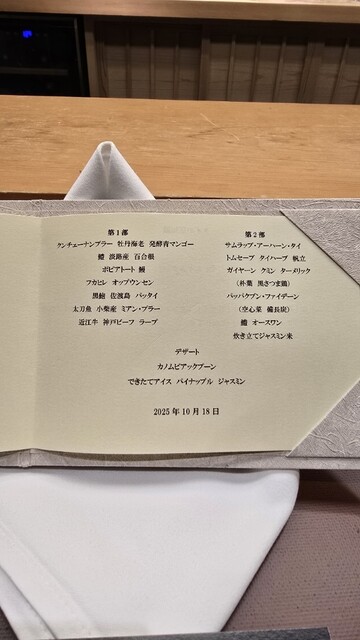 第1部
ケンチェーナンプラー 牡丹海老 発酵青マンゴー
鱧 淡路産 百合根
ポピアトート 鰻
フカヒレ オップウンセン
黒鮑 佐渡島 パッタイ
太刀魚 小柴産 ミアン・プラー
近江牛 神戸ビーフ ラープ
第2部
サムラップ・アーハーン・タイ
トムセーブ タイハーブ 帆立
ガイヤーン ケミン ターメリック
(朴葉 黒さつま鶏)
パッパクブン・ファイデーン
(空心菜 備長炭)
オースワン
炊き立てジャスミン米
デザート
カノムピアックプーン
できたてアイス パイナップル ジャスミン
2025年10月18日